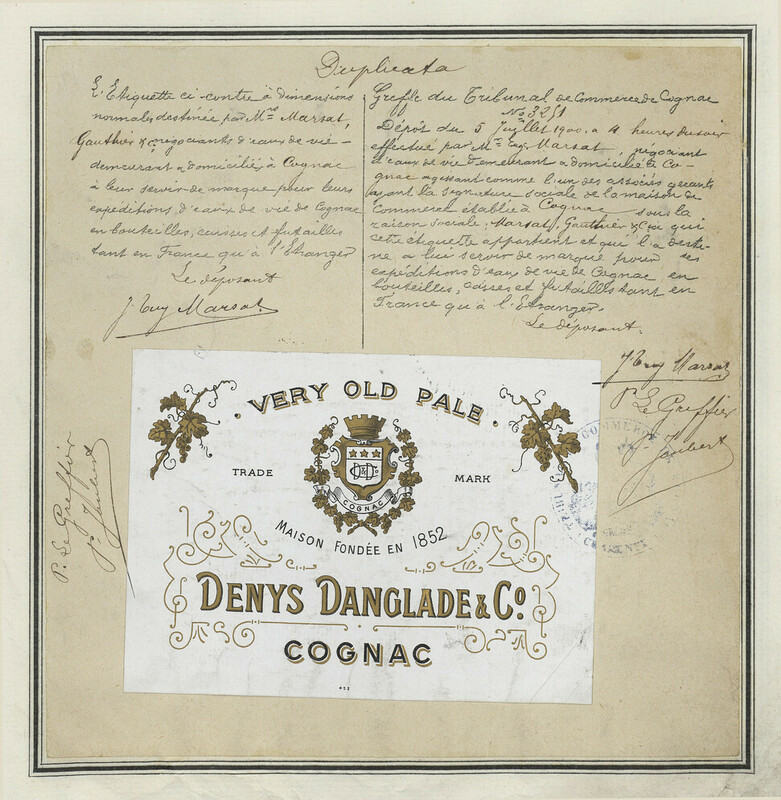 Duplicata
L'Etiquette ci-contre à dimensions
normales destinée par Mrs Marsat,
Gauthier & Co négociants d'eaux de vie
demeurant & domiciliés à Cognac
à leur servir de marque pour leurs
expéditions d'eaux de vie de Cognac
en bouteilles, caisses et futailles
tant en France qu'à l'Etranger
Le déposant
J. Guy Marsat
Greffe du Tribunal de Commerce de Cognac
No 3251
Dépôt du 5 Juillet 1900, à 4 heures du soir
effectué par Mr Marsat, négociant
d'eaux de vie demeurant & domicilié à Co-
gnac agissant comme l'un des associés gérants
ayant la signature sociale de la maison de
Commerce établie à Cognac sous la
raison sociale: Marsat, Gauthier & Co à qui
cette étiquette appartient et que l'a desti-
né à leur servir de marque pour ses
expéditions d'eaux de vie de Cognac en
bouteilles, caisses et futailles tant en
France qu'à l'Etranger.
Le déposant.
J. Guy Marsat
P. Le Greffier
P. Jaubert
P. Le Greffier
P. Jaubert
VERY OLD PALE
TRADE MARK
COGNAC
MAISON FONDÉE EN 1852
DENYS DANGLADE & Co.
COGNAC
452
COMMERCE